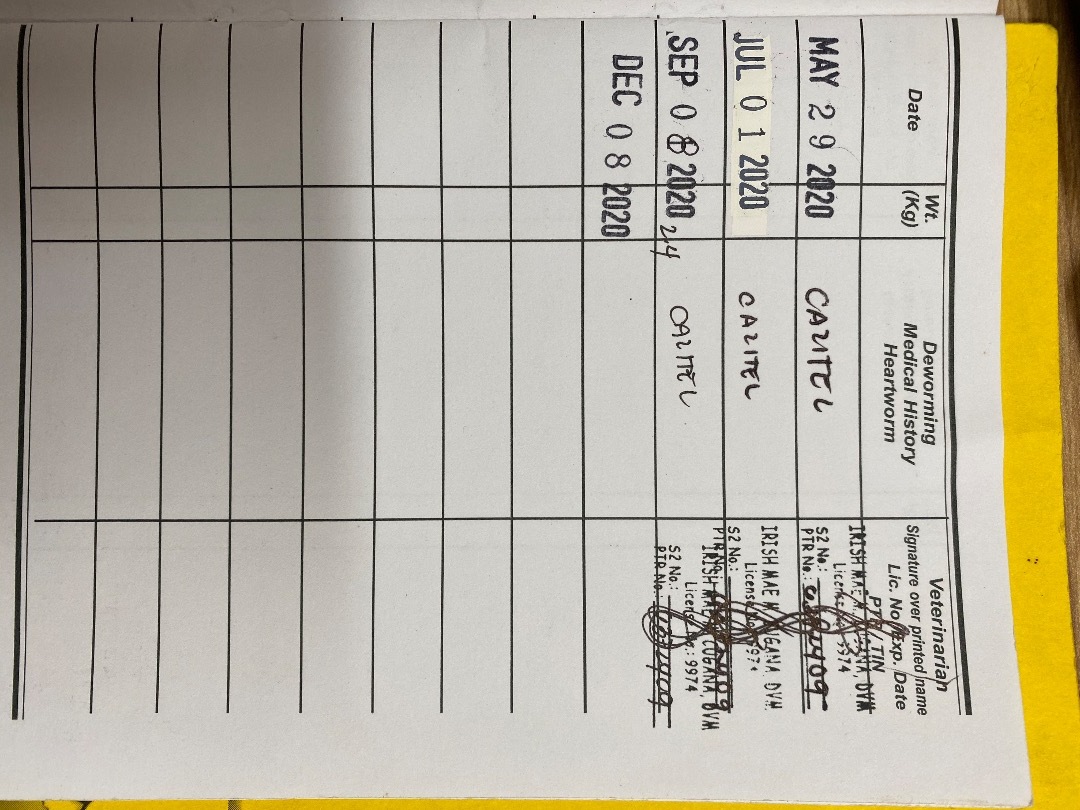 Date
Wt.
(Kg)
Deworming
Medical History
Heartworm
Veterinarian
Signature over printed name
Lic. No./Exp. Date
PTR/TIN
MAY 29 2020
CAZITEL
IRISH MAE M. DVM
License 9974
S2 No.:
PTR No.:
JUL 01 2020
CAZITEL
IRISH MAE M LUGANA, DVM
License No. 9974
S2 No.:
PTR No.:
SEP 08 2020
24
CAZITEL
IRISH MAE LUGANA, DVM
License No.: 9974
S2 No.:
PTR No.:
DEC 08 2020